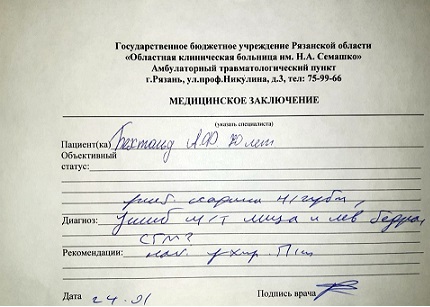 Государственное бюджетное учреждение Рязанской области
«Областная клиническая больница им. Н.А. Семашко»
Амбулаторный травматологический пункт
г.Рязань, ул.проф.Никулина, д.3, тел: 75-99-66
МЕДИЦИНСКОЕ ЗАКЛЮЧЕНИЕ
(указать специалиста)
Пациент(ка)
Объективный
статус:
н/губы,
Диагноз: Ушиб м/т лица и лев бедра,
СГМ?
Рекомендации:
Дата 24.01 Подпись врача